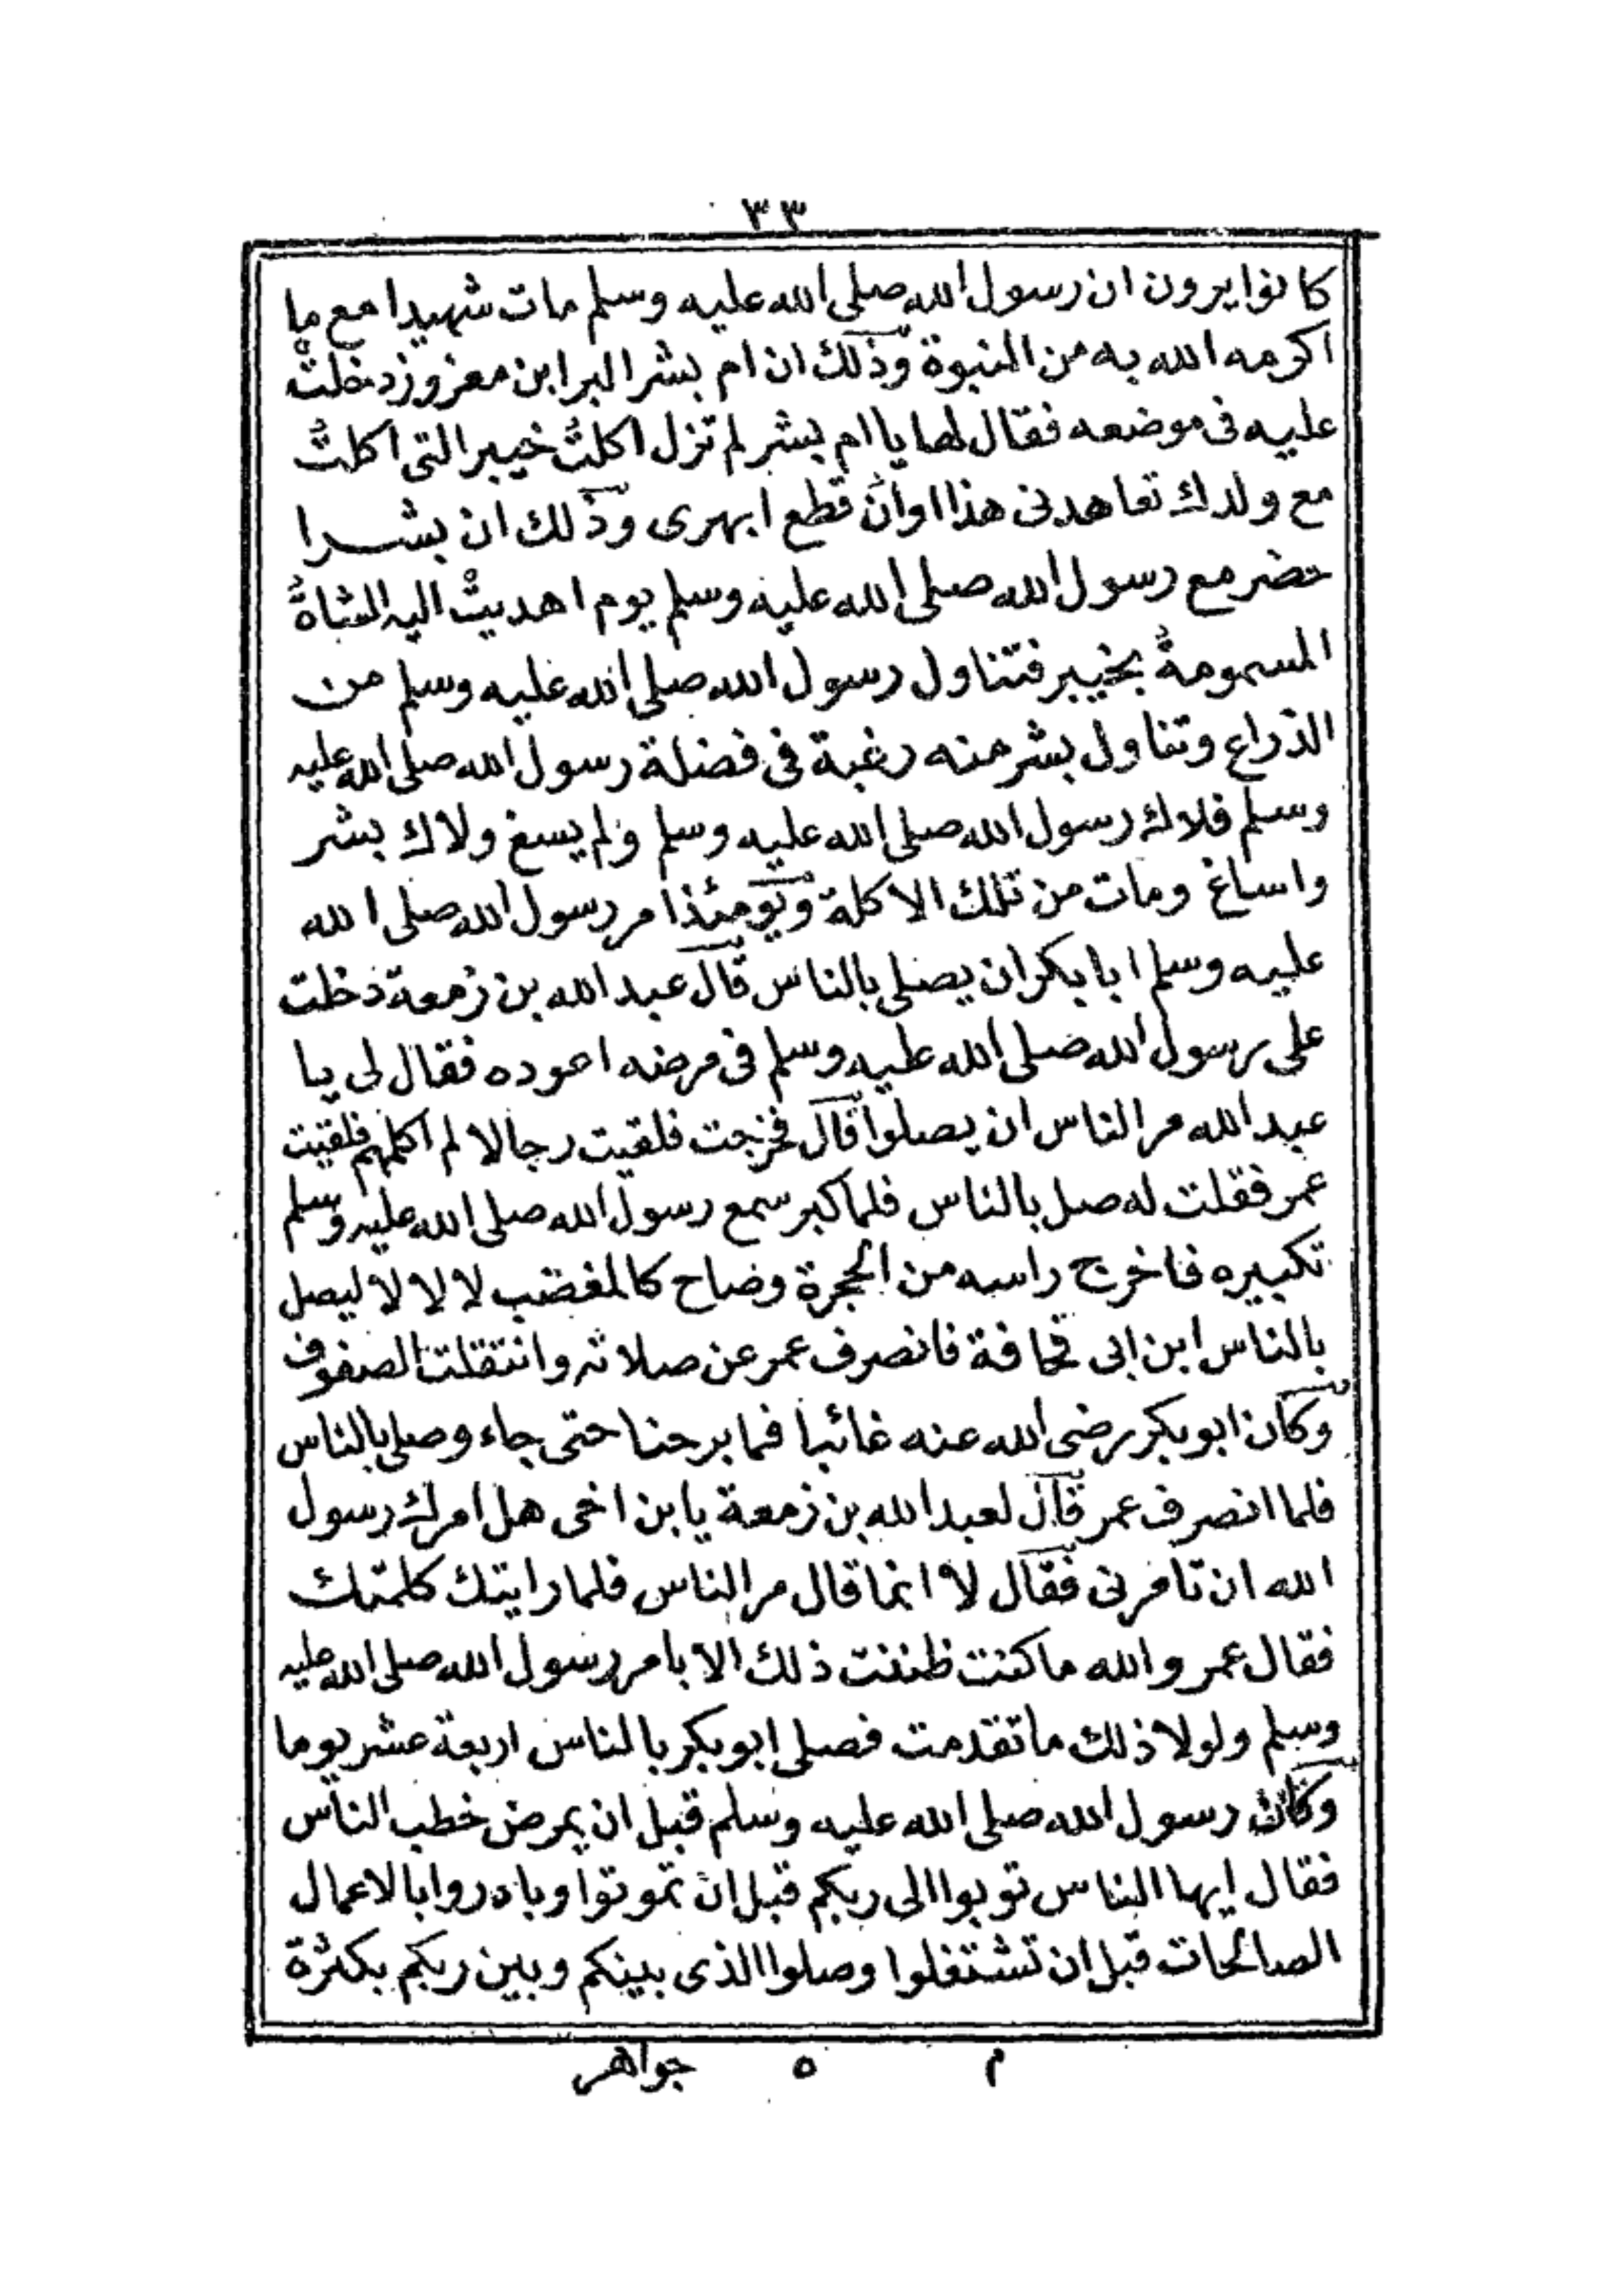 ٣٣
كانوا يرون ان رسول الله صلى الله عليه وسلم مات شهيدا مع ما
اكرمه الله به من النبوة وذلك ان ام بشر البرا بن معزوز دخلتْ
عليه فى موضعه فقال لها يا ام بشر لم تزل اكلتُ خيبر التى اكلتُ
مع ولدك تعاهدنى هذا اوانُ قطع ابهرى وذلك ان بشرا
حضر مع رسول الله صلى الله عليه وسلم يوم اهديتْ اليه الشاةُ
المسمومةُ بخيبر فتناول رسول الله صلى الله عليه وسلم من
الذراع وتناول بشر منه رغبة فى فضلة رسول الله صلى الله عليه
وسلم فلاك رسول الله صلى الله عليه وسلم ولم يسغ ولاك بشر
واساغ ومات من تلك الاكلة ويومئذ امر رسول الله صلى الله
عليه وسلم ابا بكر ان يصلى بالناس قال عبد الله بن زمعة دخلت
على رسول الله صلى الله عليه وسلم فى مرضه اعوده فقال لى يا
عبد الله مر الناس ان يصلوا قال فخرجت فلقيت رجالا لم اكلمهم فلقيت
عمر فقلت له صل بالناس فلما كبر سمع رسول الله صلى الله عليه وسلم
تكبيره فاخرج راسه من الحجرة وصاح كالمغضب لا لا لا ليصل
بالناس ابن ابى قحافة فانصرف عمر عن صلاته وانتقلت الصفوف
وكان ابو بكر رضى الله عنه غائبا فما برحنا حتى جاء وصلى بالناس
فلما انصرف عمر قال لعبد الله بن زمعة يا بن اخى هل امرك رسول
الله ان تامرنى فقال لا انما قال مر الناس فلما رايتك كلمتك
فقال عمر والله ما كنت ظننت ذلك الا بامر رسول الله صلى الله عليه
وسلم ولولا ذلك ما تقدمت فصلى ابو بكر بالناس اربعة عشر يوما
وكان رسول الله صلى الله عليه وسلم قبل ان يمرض خطب الناس
فقال ايها الناس توبوا الى ربكم قبل ان تموتوا وبادروا بالاعمال
الصالحات قبل ان تشتغلوا وصلوا الذى بينكم وبين ربكم بكثرة
م ٥ جواهر